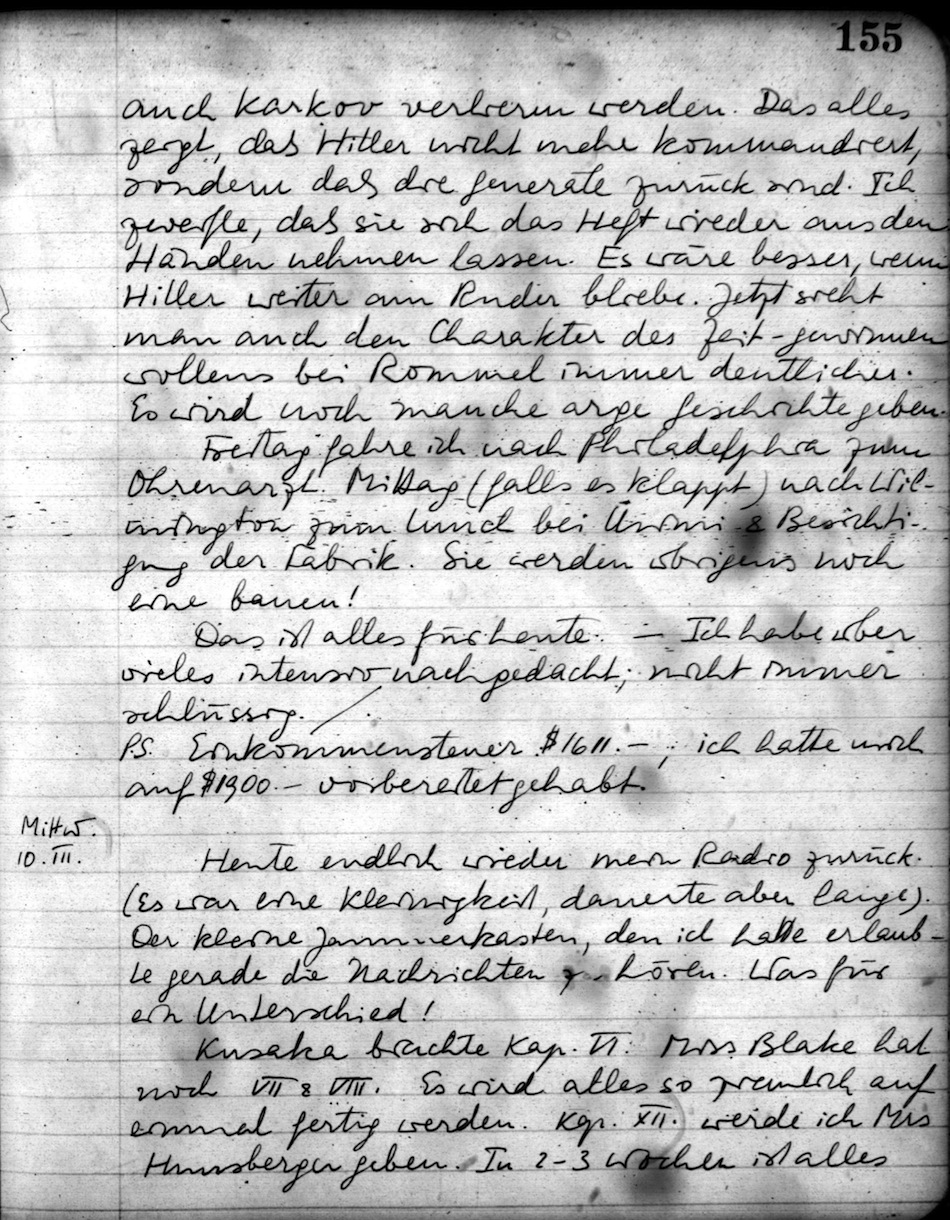 155
auch Karkov verloren werden. Das alles
zeigt, daß Hitler nicht mehr kommandiert,
sondern daß die Generäle zurück sind. Ich
zweifle, daß sie sich das Heft wieder aus den
Händen nehmen lassen. Es wäre besser, wenn
Hitler weiter am Ruder bliebe. Jetzt sieht
man auch den Charakter des Zeit-gewinnen
wollens bei Rommel immer deutlicher.
Es wird noch manche arge Geschichte geben.
Freitag fahre ich nach Philadelphia zum
Ohrenarzt. Mittag (falls es klappt) nach Wil-
mington zum Lunch bei & Besichti-
gung der Fabrik. Sie werden übrigens noch
eine bauen!
Das ist alles für heute. — Ich habe über
vieles intensiv nachgedacht; nicht immer
schlüssig.
P.S. Einkommensteuer $1611.-; ich hatte mich
auf $1900.- vorbereitet gehabt.
Mittw.
10. III.
Heute endlich wieder mein Radio zurück.
(Es war eine Kleinigkeit, dauerte aber lange).
Der kleine Jammerkasten, den ich hatte erlaub-
te gerade die Nachrichten zu hören. Was für
ein Unterschied!
Kusaka brachte Kap. VI. Miss Blake hat
noch VII & VIII. Es wird alles so ziemlich auf
einmal fertig werden. Kap. XII. werde ich Mrs
Hunsberger geben. In 2-3 Wochen ist alles